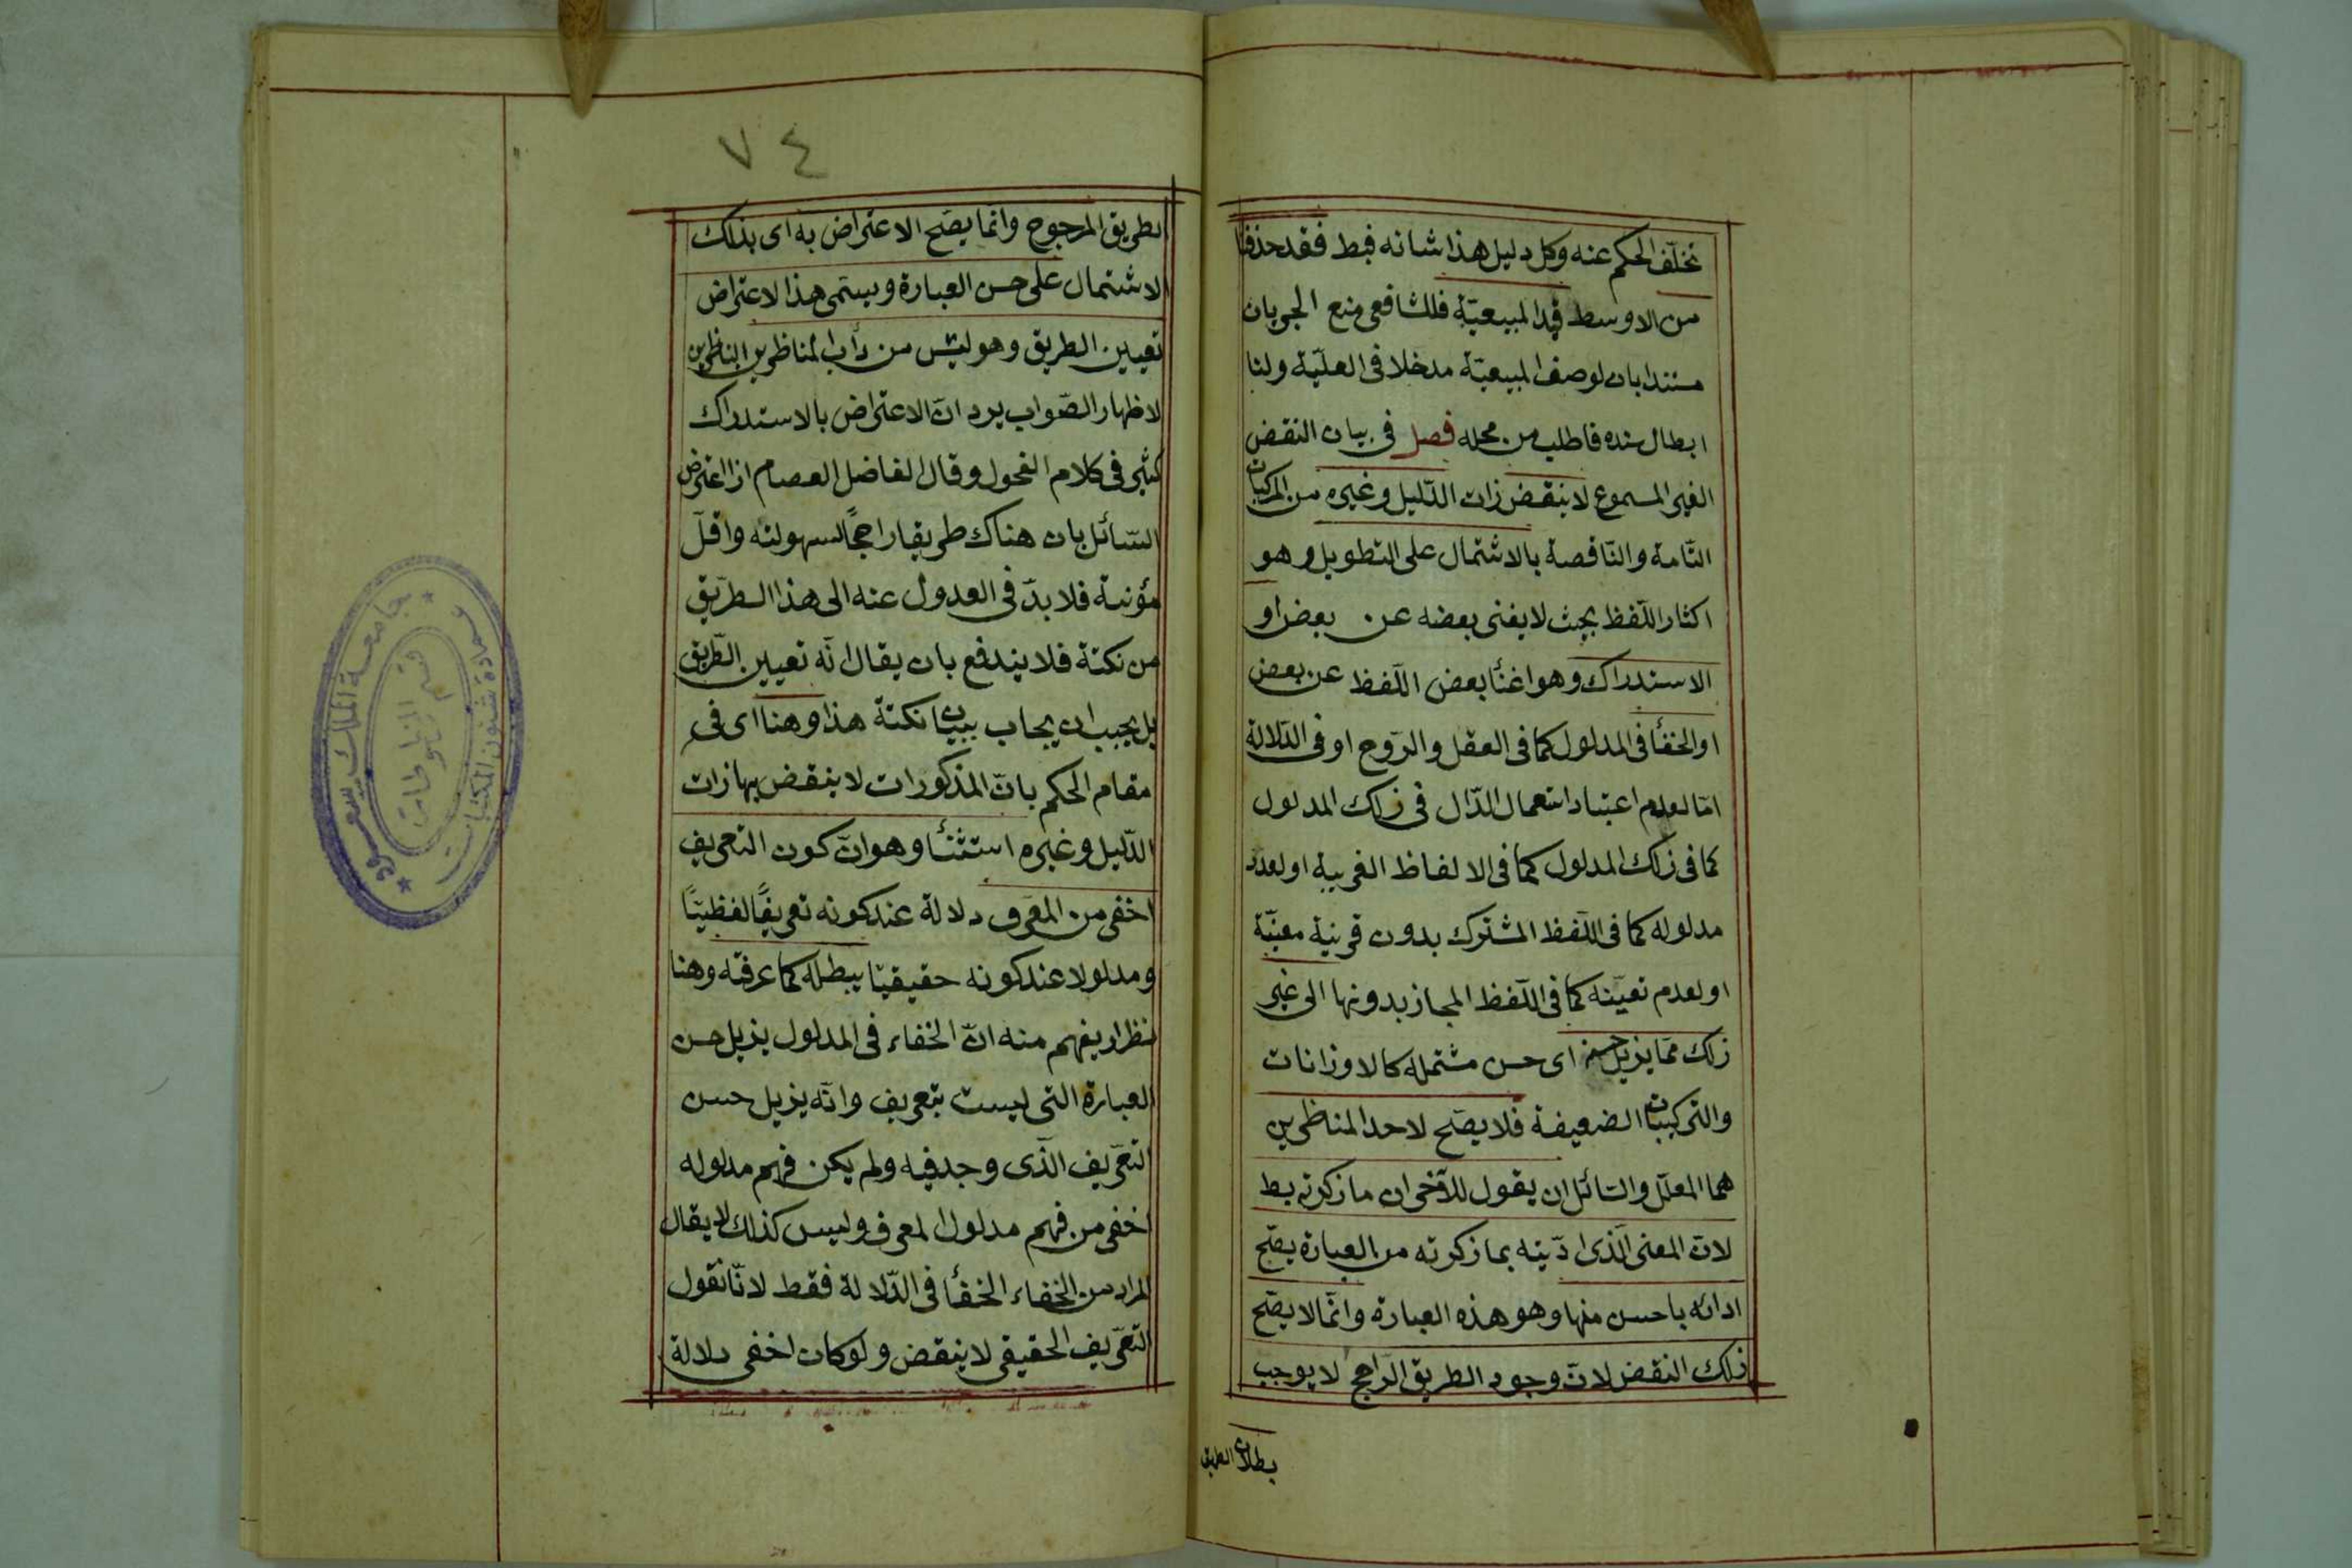 تخلف الحكم عنه وكل دليل هذا شانه فبط فقد حذفنا
من الاوسط قيد المبيعيّة فللشافعى منع الجريان
مستندا بان لوصف المبيعيّة مدخلا فى العليّة ولنا
ابطال سنده فاطلب من محله فصل فى بيان النقض
الغير المسموع لا ينقض زات الدّليل وغيره من المركبات
التّامة والنّاقصة بالاشتمال على التطويل وهو
اكثار اللّفظ بحيث لا يغنى بعضه عن بعض او
الاستدراك وهو اغنأ بعض اللّفظ عن بعض
او الخفأ فى المدلول كما فى العقل والرّوح او فى الدّلالة
امّا لعدم اعتياد استعمال الدّال فى زلك المدلول
كما فى زلك المدلول كما فى الالفاظ الغريبة او لعدد
مدلوله كما فى اللّفظ المشترك بدون قرينة معيّنة
او لعدم تعيّنه كما فى اللّفظ المجاز بدونها الى غير
زلك ممّا يزيل حسنه اى حسن مشتمله كالاوزانات
والتركيبات الضعيفة فلا يصّح لاحد المناظرين
هما المعلّل والسّائل ان يقول للآخر ان ما زكرته بط
لانّ المعنى الّذى ادّيته بما زكرته من العبارة يصّح
ادائه باحسن منها وهو هذه العبارة وانّما لا يصّح
زلك النقض لانّ وجود الطريق الرّاجح لا يوجب
بطلان الطريق
٧٤
بطريق المرجوح وانّما يصّح الاعتراض به اى بذلك
الاشتمال على حسن العبارة ويسمّى هذا الاعتراض
تعيين الطريق وهو ليس من دأب المناظرين الناظرين
لاظهار الصّواب يرد انّ الاعتراض بالاستدراك
كثير فى كلام الفحول وقال الفاضل العصام ازا اعترض
السّائل بان هناك طريقا راجحًا لسهولته واقلّ
مؤنية فلا بدّ فى العدول عنه الى هذا الطّريق
من نكتة فلا يندفع بان يقال انّه تعيين الطّريق
بل يجب ان يجاب ببيان نكتة هذا وهنا اى فى
مقام الحكم بانّ المذكورات لا ينقض بها زات
الدّليل وغيره استثنأ وهو انّ كون التعريف
اخفى من المعرّف دلالة عند كونه تعريفًا لفظيّا
ومدلولا عند كونه حقيقيّا يبطله كما عرفته وهنا
نظر از يفهم منه انّ الخفاء فى المدلول يذيل حسن
العبارة التى ليست بتعريف وانّه يزيل حسن
التعريف الّذى وجد فيه ولم يكن فهم مدلوله
اخفى من فهم مدلول المعرف وليس كذلك لا يقال
المراد من الخفاء الخفأ فى الدّلالة فقط لانّا نقول
التعريف الحقيقى لا ينقض ولو كان اخفى دلالة
جامعة الملك سعود
عمادة شئون المكتبات
قسم المخطوطات